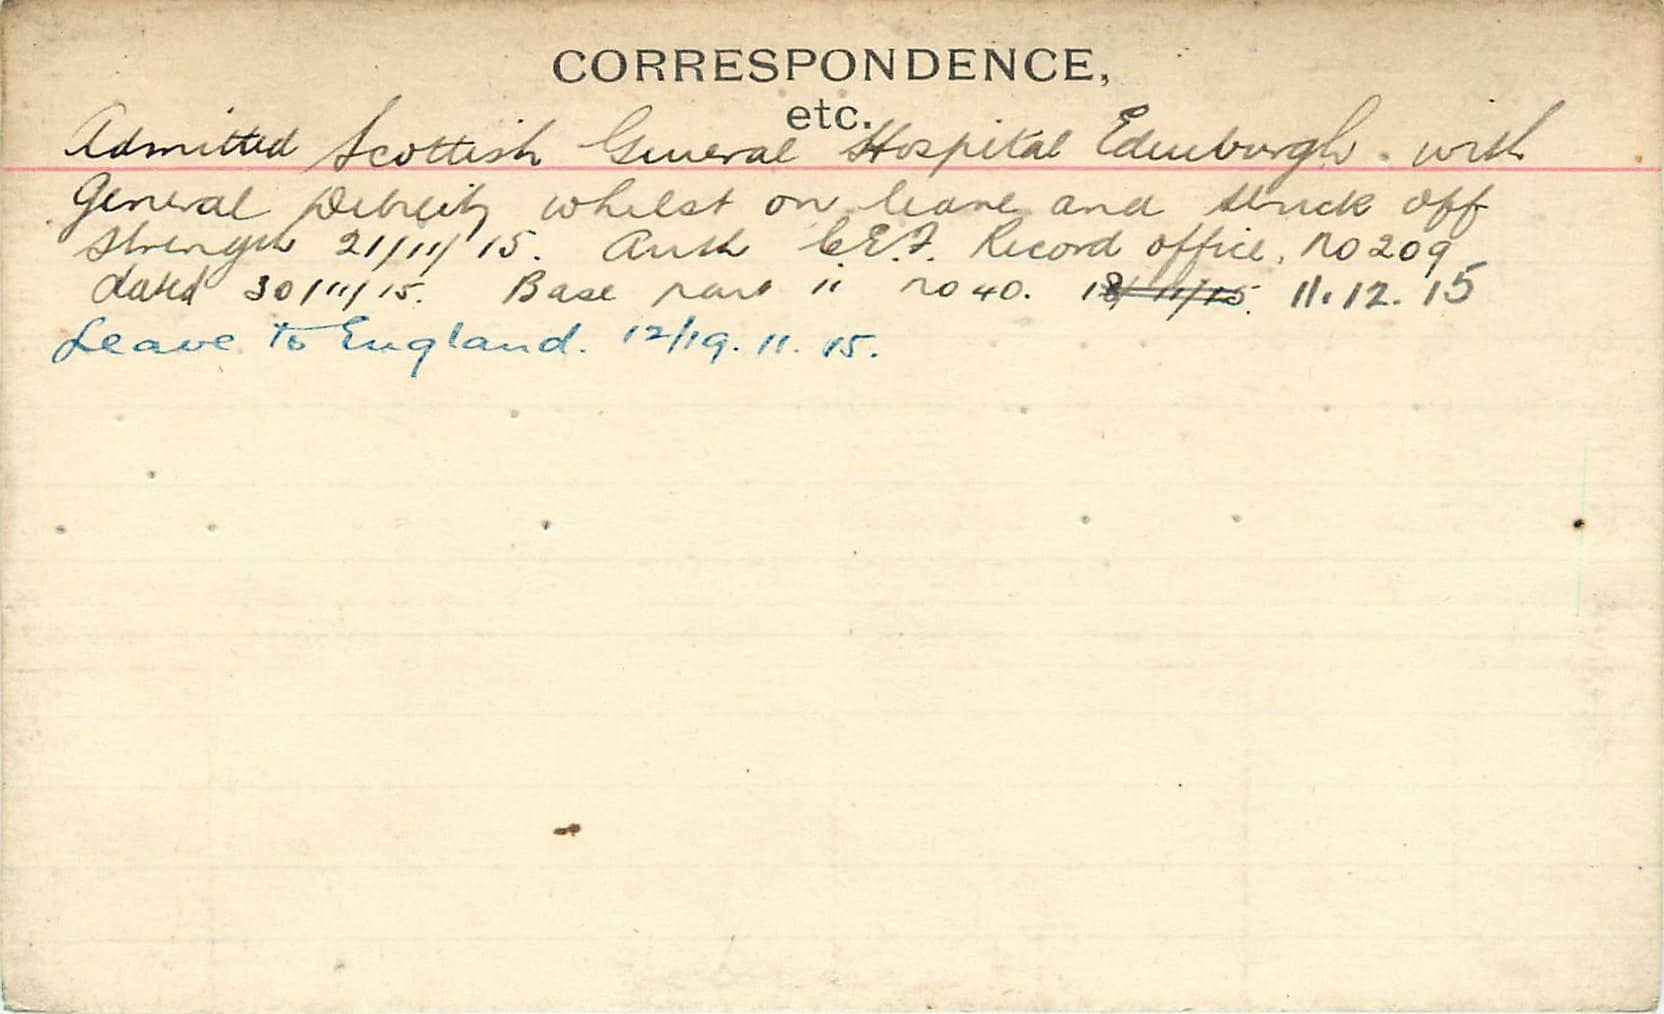 CORRESPONDENCE,
etc.
Admitted Scottish General Hospital Edinburgh. with
General Debility whilst on leave and struck off
strength 21/11/15. Auth C.E.F. Record office, No 209
dated 30/11/15. Base part ii No 40. 18/11/15. 11.12.15
Leave to England. 12/19.11.15.